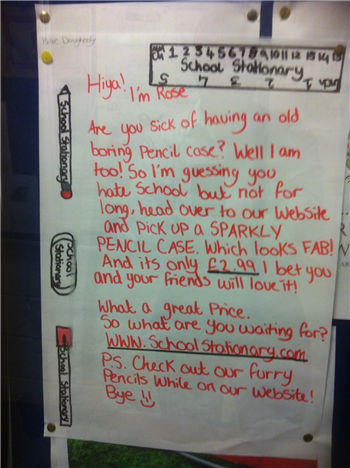 cm 1 2 3 4 5 6 7 8 9 10 11 12 13 14 15
School Stationary
Hiya!
I'm Rose
Are you sick of having an old
boring Pencil case? Well I am
too! So I'm guessing you
hate School but not for
long, head over to our website
and Pick UP a SPARKLY
PENCIL CASE. Which looks FAB!
And its only £2.99 I bet you
and your friends will love it!
What a great Price.
So what are you waiting for?
WWW.SchoolStationary.com
P.S. Check out our furry
Pencils while on our website!
Bye
School Stationary
School
Stationary
School Stationary